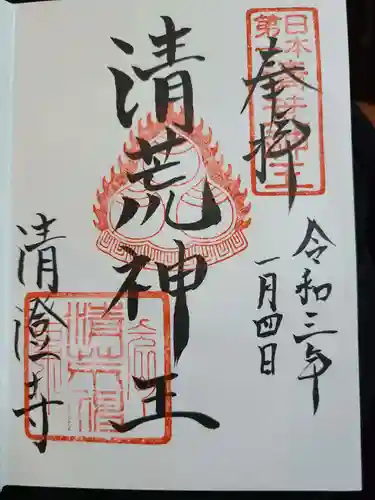 奉拝
日本
第一
令和三年
一月四日
清荒神王
清澄寺